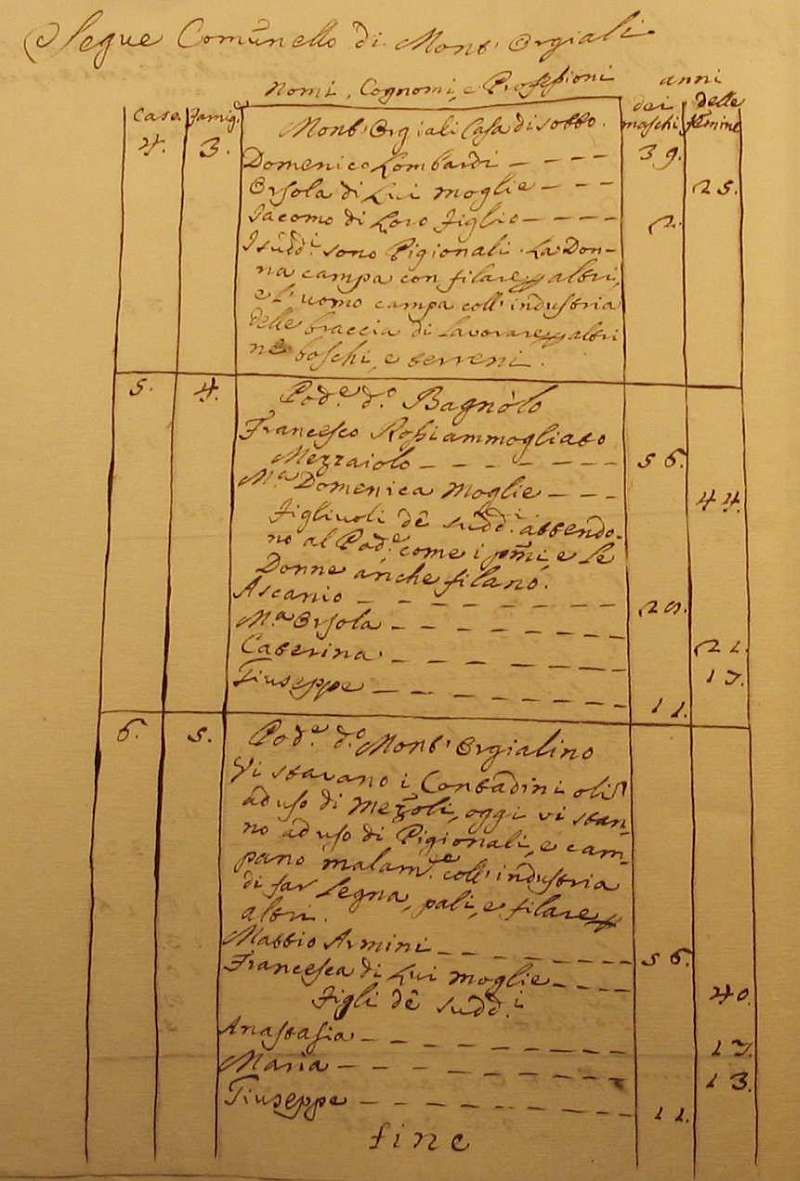 Segue Comunello di Mont' Orgiali
Nomi, Cognomi, e Professioni anni
Case Famig. dei maschi delle femine
4. 3. Mont' Orgiali Casa di sotto.
Domenico Lombardi - - - - 39.
Orsola di Lui moglie - - - 25.
Iacomo di Loro figlio - - - - 2.
I sudd.i sono Pigionali. La Don-
na campa con filare p altri,
e l'uomo campa coll'industria
delle braccia di Lavorare p altri
ne boschi, e terreni.
5. 4. Pod.e d.o Bagnòlo
Francesco Rossi ammogliato
Mezzaiolo - - - - - - - - 56.
M.a Domenica Moglie - - - 44.
Figlivoli dè sudd.i attendo-
no al Pod.e come i pmi, e le
Donne anche filano.
Ascanio - - - - - - - - 29.
M.a Orsola - - - - - - - 21.
Caterina - - - - - - - 17.
Giuseppe - - - - - - - 11.
6. 5. Pod.e d.o Mont' Orgialino
Vi stavano i Contadini
ad uso di Mezzoli, oggi vi stan-
no ad uso di Pigionali, e cam-
pano malam.e coll'industria
di far Legna, pali, e filare p
altri.
Mattio Armini - - - - - - 56.
Francesca di Lui moglie - - - - 40.
Figli dè sudd.i
Anastasia - - - - - - - - 17.
Maria - - - - - - - - 13.
Giuseppe - - - - - - - - 11.
fine